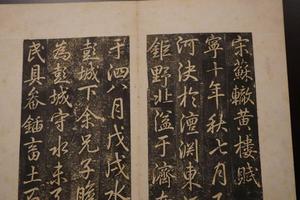 宋蘇轍黃樓賦
寧十年秋七月
河決於澶淵東
鉅野北溢于濟
于泗八月戊戌水
彭城下余兄子瞻
為彭城守水未
民具畚鍤畜土